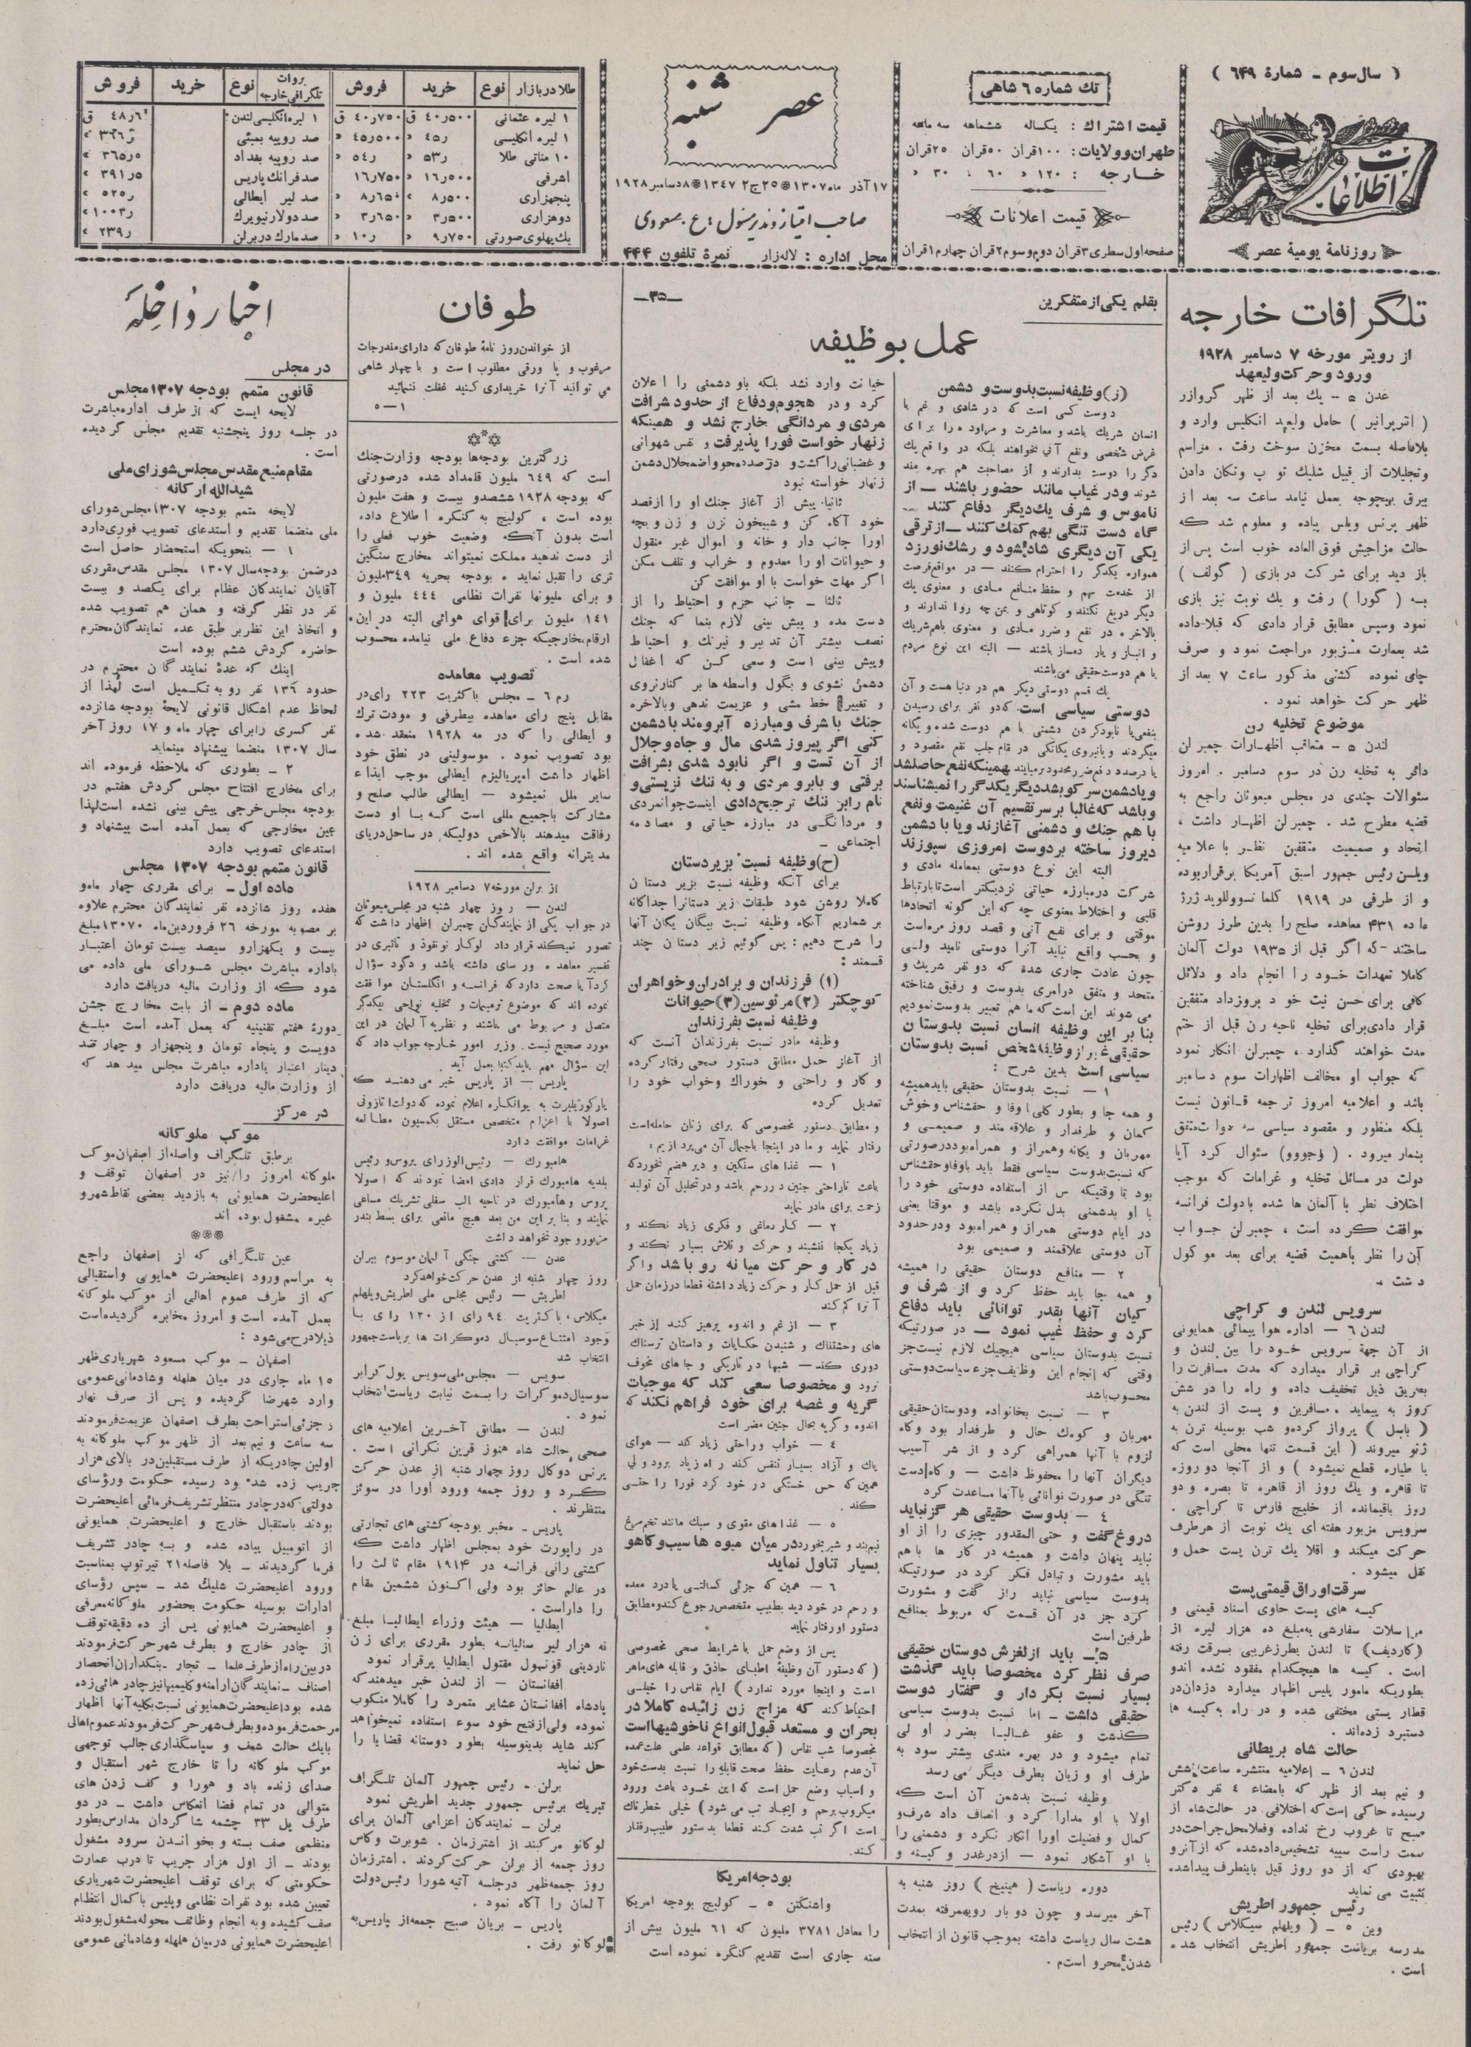 ( سال سوم ـ شمارهٔ ۶۴۹ )
اطلاعات
روزنامهٔ یومیهٔ عصر
تك شماره ۶ شاهی
قیمت اشتراك : یكساله ششماهه سه ماهه
طهران وولایات : ۱۰۰قران ۵۰قران ۲۵قران
خارجه : ۱۲۰ » ۶۰ : ۳۰ »
قیمت اعلانات
صفحه‌اول سطری ۳قران دوم‌و‌سوم ۲قران چهارم ۱قران
عصر شنبه
۱۷ آذر ماه ۱۳۰۷ ۲۵ ج۲ ۱۳۴۷ ۸دسامبر ۱۹۲۸
صاحب امتیاز و مدیر مسئول : ع . مسعودی
محل اداره : لاله‌زار نمرهٔ تلفون ۴۴۴
طلا در بازار نوع خرید فروش
۱ لیره عثمانی ۴۰٫۵۰۰ ق ۴۰٫۷۵۰ ق
۱ لیره انگلیسی ۴۵٫ » ۴۵٫۵۰۰ »
۱۰ مناتی طلا ۵۳٫ » ۵۴٫ »
اشرفی ۱۶٫۵۰۰ » ۱۶٫۷۵۰ »
پنجهزاری ۸٫۵۰۰ » ۸٫۶۵۰ »
دوهزاری ۳٫۵۰۰ » ۳٫۶۵۰ »
یك پهلوی صورتی ۹٫۷۵۰ » ۱۰٫ »
بروات تلگرافی خارجه نوع خرید فروش
۱ لیره انگلیسی لندن ۴۸٫۶ ق
صد روپیه بمبئی ۳۶۶٫ »
صد روپیه بغداد ۳۶۵٫۵ »
صد فرانك پاریس ۳۹۱٫۵ »
صد لیر ایطالی ۵۲۵٫ »
صد دولار نیویرك ۱۰۰۳٫ »
صد مارك در برلن ۲۳۹٫ »
تلگرافات خارجه
از رویتر مورخه ۷ دسامبر ۱۹۲۸
ورود و حرکت ولیعهد
عدن ۵ ـ یك بعد از ظهر کروازر
( انترپرایز ) حامل ولیعهد انگلیس وارد و
بلافاصله بسمت مخزن سوخت رفت . مراسم
وتجلیلات از قبیل شلیك توپ وتکان دادن
بیرق بهیچوجه بعمل نیامد ساعت سه بعد از
ظهر پرنس ویلس پیاده و معلوم شد که
حالت مزاجیش فوق العاده خوب است پس از
باز دید برای شرکت دربازی ( گولف )
به ( گورا ) رفت و یك نوبت نیز بازی
نمود وسپس مطابق قرار دادی که قبلاداده
شد بعمارت مزبور مراجعت نمود و صرف
چای نموده کشتی مذکور ساعت ۷ بعد از
ظهر حرکت خواهد نمود .
موضوع تخلیه رن
لندن ۵ ـ متعاقب اظهارات چمبرلن
دائر به تخلیه رن در سوم دسامبر . امروز
سئوالات چندی در مجلس مبعوثان راجع به
قضیه مطرح شد . چمبرلن اظهار داشت ،
اتحاد و صمیمیت متفقین نظر با علامیه
ویلسن رئیس جمهور اسبق آمریکا برقراربوده
و از طرفی در ۱۹۱۹ کلمانسوولوید ژرژ
ماده ۴۳۱ معاهده صلح را بدین طرز روشن
ساختند ـ که اگر قبل از ۱۹۳۵ دولت آلمان
کاملا تعهدات خود را انجام داد و دلائل
کافی برای حسن نیت خود بروزداد متفقین
قرار دادی برای تخلیه ناحیه رن قبل از ختم
مدت خواهند گذارد ، چمبرلن انکار نمود
که جواب او مخالف اظهارات سوم دسامبر
باشد و اعلامیه امروز ترجمه قانون نیست
بلکه منظور و مقصود سیاسی سه دولت متفق
بشمار میرود .
دولت در مسائل تخلیه و غرامات که موجب
اختلاف نظر با آلمان ها شده بادولت فرانسه
موافقت کرده است ، چمبرلن جواب
آن را نظر باهمیت قضیه برای بعد موکول
داشت .
سرویس لندن و کراچی
لندن ۶ ـ اداره هوا پیمائی همایونی
از آن جهة سرویس خود را بین لندن و
کراچی بر قرار میدارد که مدت مسافرت را
بطریق ذیل تخفیف داده و راه را در شش
روز به پیماید . مسافرین و پست از لندن به
( باسل ) پرواز کرده‌و شب بوسیله ترن به
ژنو میروند ( این قسمت تنها محلی است که
با طیاره قطع نمیشود ) و از آنجا دو روزه
تا قاهره و یك روز از قاهره تا بصره و دو
روز باقیمانده از خلیج فارس تا کراچی .
سرویس مزبور هفته ای یك نوبت از هر طرف
حرکت میکند و اقلا یك ترن پست حمل و
نقل میشود .
سرقت اوراق قیمتی پست
کیسه های پست حاوی اسناد قیمتی و
مراسلات سفارشی به‌مبلغ ده هزار لیره از
(کاردیف) تا لندن بطرز غریبی بسرقت رفته
است . کیسه ها هیچکدام مفقود نشده اندو
بطوریکه مامور پلیس اظهار میدارد دزدان‌در
قطار پستی مختفی شده و در راه به کیسه ها
دستبرد زده‌اند .
حالت شاه بریطانی
لندن ۶ ـ اعلامیه منتشره ساعت شش
و نیم بعد از ظهر که بامضاء ۴ نفر دکتر
رسیده حاکی است که اختلافی در حالت شاه از
صبح تا غروب رخ نداده وفعلامحل‌جراحت‌در
سمت راست سینه تشخیص داده شده که از آنرو
بهبودی که از دو روز قبل باینطرف پیدا شده
تثبیت می نماید
رئیس جمهور اطریش
وین ۵ ـ ( ویلهلم میکلاس ) رئیس
مدرسه بریاست جمهور اطریش انتخاب شده
است .
بقلم یکی از متفکرین
ـ۳۵ـ
عمل بوظیفه
(ز) وظیفه نسبت بدوست و دشمن
دوست کسی است که در شادی و غم با
انسان شریك باشد و معاشرت و مراوده را برای
غرض شخصی ونفع آنی نخواهند بلکه در واقع یك
دگر را دوست بدارند و از مصاحبت هم بهره مند
شوند ودر غیاب مانند حضور باشند ـ از
ناموس و شرف یك‌دیگر دفاع کنند ـ
گاه دست تنگی بهم کمك کنند ـ از ترقی
یکی آن دیگری شاد شود و رشك نورزد
همواره یکدگر را احترام کنند ـ در مواقع فرصت
از خدمت بهم و حفظ منافع مادی و معنوی یك
دیگر دریغ نکنند و کوتاهی و بمن چه روا ندارند و
بالاخره در نفع و ضرر مادی و معنوی باهم شریك
و انباز و یار دمساز باشند ـ البته این نوع مردم
با هم دوست حقیقی می‌باشند
یك قسم دوستی دیگر هم در دنیا هست و آن
دوستی سیاسی است که‌دو نفر برای رسیدن
بنفعی‌یا نابودکردن دشمنی با هم دوست شده‌و یگانه
میگردند
یا درصدد دفع ضرر محدود برمیایند همینکه نفع حاصلشد
ویادشمن سرکوبشددیگر یکدگر را نمیشناسند
وباشد که غالبا بر سر تقسیم آن غنیمت و نفع
با هم جنك و دشمنی آغازند و یا با دشمن
دیروز ساخته بردوست امروزی سپوزند
البته این نوع دوستی بمعامله مادی و
شرکت در مبارزه حیاتی نزدیکتر است تا بارتباط
قلبی و اختلاط معنوی چه که این گونه اتحادها
موقتی و برای نفع آنی و قصد روز مره است
و بحسب واقع نباید آنرا دوستی نامید ولی
چون عادت جاری شده که دو نفر شریك و
متحد و متفق درامری بدوست و رفیق شناخته
می شوند این است که ما هم تعبیر بدوست نمودیم
بنا بر این وظیفه انسان نسبت بدوستان
حقیقی غیر از وظیفهٔ شخص نسبت بدوستان
سیاسی است بدین شرح :
۱ ـ نسبت بدوستان حقیقی باید همیشه
و همه جا و بطور کلی با وفا و حقشناس وخوش
گمان و طرفدار و علاقه مند و صمیمی و
مهربان و یگانه وهمراز و همراه بود در صورتی
که نسبت بدوست سیاسی فقط باید باوفاوحقشناس
بود تا وقتیکه پس از استفاده دوستی خود را
با او بدشمنی بدل نکرده باشد و موقتا یعنی
در ایام دوستی همراز و همراه بود ودرحدود
آن دوستی علاقمند و صمیمی بود
۲ ـ منافع دوستان حقیقی را همیشه
و همه جا باید حفظ کرد و از شرف و
کیان آنها بقدر توانائی باید دفاع
کرد و حفظ غیب نمود ـ در صورتیکه
نسبت بدوستان سیاسی هیچیك لازم نیست جز
وقتی که انجام این وظایف جزء سیاست دوستی
محسوب باشد
۳ ـ نسبت بخانواده ودوستان حقیقی
مهربان و کومك حال و طرفدار بود وگاه
لزوم با آنها همراهی کرد و از شر آسیب
دیگران آنها را محفوظ داشت ـ و گاه دست
تنگی در صورت توانائی با آنها مساعدت کرد
۴ ـ بدوست حقیقی هر گز نباید
دروغ گفت و حتی المقدور چیزی را از او
نباید پنهان داشت و همیشه در کار ها با هم
باید مشورت و تبادل فکر کرد در صورتیکه
بدوست سیاسی نباید راز گفت و مشورت
کرد جز در آن قسمت که مربوط بمنافع
طرفین است
۵ـ باید از لغزش دوستان حقیقی
صرف نظر کرد مخصوصا باید گذشت
بسیار نسبت بکردار و گفتار دوست
حقیقی داشت ـ اما نسبت بدوست سیاسی
گذشت و عفو غالبا بضرر او لی
تمام میشود و در بهره مندی بیشتر سود به
طرف او و زیان بطرف دیگر می رسد
وظیفه نسبت بدشمن آن است که
اولا با او مدارا کرد و انصاف داد شرف‌و
کمال و فضیلت اورا انکار نکرد و دشمنی را
با او آشکار نمود ـ از در غدر و کینه و
خیانت وارد نشد بلکه باو دشمنی را اعلان
کرد و در هجوم و دفاع از حدود شرافت
مردی و مردانگی خارج نشد و همینکه
زنهار خواست فورا پذیرفت و نفس شهوانی
و غضبانی را کشت و درصدد محوو اضمحلال دشمن
زنهار خواسته نبود
ثانیا پیش از آغاز جنك او را از قصد
خود آگاه کن و شبیخون نزن و زن و بچه
اورا جانب دار و خانه و اموال غیر منقول
و حیوانات او را معدوم و خراب و تلف مکن
اگر مهلت خواست با او موافقت کن
ثالثا ـ جانب حزم و احتیاط را از
دست مده و پیش بینی لازم بنما که جنك
نصف بیشتر آن تدبیر و نیرنك و احتیاط
وپیش بینی است و سعی کن که اغفال
دشمن نشوی و بگول واسطه ها بر کنار نروی
و تغییر خط مشی و عزیمت ندهی وبالاخره
جنك با شرف و مبارزه آبرومند با دشمن
کنی اگر پیروز شدی مال و جاه و جلال
از آن تست و اگر نابود شدی بشرافت
برفتی و بابرو مردی و به ننك نزیستی و
نام را بر ننك ترجیح دادی اینست جوانمردی
و مردانگی در مبارزه حیاتی و مصادمه
اجتماعی ـ
(ح) وظیفه نسبت بزیردستان
برای آنکه وظیفه نسبت بزیر دستان
کاملا روشن شود طبقات زیر دستانرا جداگانه
بر شماریم آنگاه وظیفه نسبت بیگان یگان آنها
را شرح دهیم : پس گوئیم زیر دستان چند
قسمند :
(۱) فرزندان و برادران وخواهران
کوچکتر (۲) مرئوسین (۳) حیوانات
وظیفه نسبت بفرزندان
وظیفه مادر نسبت بفرزندان آنست که
از آغاز حمل مطابق دستور صحی رفتار کرده
و کار و راحتی و خوراك وخواب خود را
تعدیل کرده
و مطابق دستور مخصوصی که برای زنان حامله‌است
رفتار نماید و ما در اینجا باجمال آن می پردازیم :
۱ ـ غذا های سنگین و دیر هضم نخورد که
باعث ناراحتی جنین در رحم باشد و در تحلیل آن تولید
زحمت برای مادر نماید
۲ ـ کار دماغی و فکری زیاد نکند و
زیاد یکجا ننشیند و حرکت و تلاش بسیار نکند و
در کار و حرکت میانه رو باشد واگر
قبل از حمل کار و حرکت زیاد داشته قطعا درزمان حمل
آنرا کم کند
۳ ـ از غم و اندوه پرهیز کند از خبر
های وحشتناك و شنیدن حکایات و داستان ترسناك
دوری کند ـ شبها در تاریکی و جاهای مخوف
نرود و مخصوصا سعی کند که موجبات
گریه و غصه برای خود فراهم نکند که
اندوه و گریه بحال جنین مضر است
۴ ـ خواب وراحتی زیاد کند ـ هوای
پاك و آزاد بسیار تنفس کند راه زیاد برود ولی
همین که حس خستگی در خود کرد فورا را حتی
کند .
۵ ـ غذا های مقوی و سبك مانند تخم مرغ
نیم‌بند و شیر بخورد در میان میوه ها سیب و کاهو
بسیار تناول نماید
۶ ـ همین که جزئی کسالتی یا درد معده
و رحم در خود دید بطبیب متخصص رجوع کند ومطابق
دستور او رفتار نماید
پس از وضع حمل با شرایط صحی مخصوصی
(که دستور آن وظیفهٔ اطبای حاذق و قابله های ماهر
است و اینجا مورد ندارد ) ایام نفاس را خیلی
احتیاط کند که مزاج زن زائیده کاملا در
بحران و مستعد قبول انواع ناخوشیهااست
مخصوصا شب نفاس ( که مطابق قواعد علمی علت عمده
آن عدم رعایت حفظ صحت قابله را نسبت بدست خود
و اسباب وضع حمل است که این خود باعث ورود
میکروب برحم و ایجاد تب می شود ) خیلی خطرناك
است اگر تب شدت کند قطعا بدستور طبیب رفتار
کند .
بودجه امریکا
واشنگتن ۵ ـ کولیج بودجه امریکا
را معادل ۳۷۸۱ ملیون که ۶۱ ملیون بیش از
سنه جاری است تقدیم کنگره نموده است
دوره ریاست ( هینیخ ) روز شنبه به
آخر میرسد و چون دو بار رویهمرفته بمدت
هشت سال ریاست داشته بموجب قانون از انتخاب
شدن محروم است .
طوفان
از خواندن روز نامهٔ طوفان که دارای مندرجات
مرغوب و پا ورقی مطلوب است و با چهار شاهی
می توانید آنرا خریداری کنید غفلت ننمائید
۱ـ۵
بزرگترین بودجه‌ها بودجه وزارت جنك
است که ۶۴۹ ملیون قلمداد شده درصورتی
که بودجه ۱۹۲۸ ششصدو بیست و هفت ملیون
بوده است ، کولیج به کنگره اطلاع داده
است بدون آنکه وضعیت خوب فعلی را
از دست ندهید مملکت نمیتواند مخارج سنگین
تری را تقبل نماید . بودجه بحریه ۳۴۹ ملیون
و برای ملیونها نفرات نظامی ۴۴۴ ملیون و
۱۴۱ ملیون برای قوای هوائی البته در این
ارقام مخارجیکه جزء دفاع ملی نیامده محسوب
شده است .
تصویب معاهده
رم ۶ ـ مجلس باکثریت ۲۲۳ رای در
مقابل پنج رای معاهده بیطرفی و مودت ترك
و ایطالی را که در مه ۱۹۲۸ منعقد شده
بود تصویب نمود . موسولینی در نطق خود
اظهار داشت امپریالیزم ایطالی موجب ایذاء
سایر ملل نمیشود ـ ایطالی طالب صلح و
مشارکت باجمیع مللی است که با او دست
رفاقت میدهند بالاخص دولیکه در ساحل دریای
مدیترانه واقع شده اند .
از برلن مورخه ۷ دسامبر ۱۹۲۸
لندن ـ روز چهار شنبه در مجلس مبعوثان
در جواب یکی از نمایندگان چمبرلن اظهار داشت که
تصور نمیکند قرار داد لوکارنو نفوذ و تاثیری در
تفسیر معاهده ورسای داشته باشد و دگر سؤال
کرد آیا صحت دارد که فرانسه و انگلستان موافقت
نموده اند که موضوع ترمیمات و تخلیه نواحی بیکدیگر
متصل و مربوط می باشند و نظریه آلمان در این
مورد صحیح نیست . وزیر امور خارجه جواب داد که
این سؤال مهم باید کتبا بعمل آید .
پاریس ـ از پاریس خبر می‌دهند که
پارکورژیلبرت به پوانکاره اعلام نموده که دولت اتازونی
اصولا با اعزام متخصص مستقل بکمسیون مطالعه
غرامات موافقت دارد
هامبورك ـ رئیس الوزرای پروس و رئیس
بلدیه هامبورك قرار دادی امضا نمودند که اصولا
پروس و هامبورك در ناحیه الب سفلی تشریك مساعی
نمایند و بنابر این من بعد هیچ مانعی برای بسط بندر
مزبور وجود نخواهد داشت
عدن ـ کشتی جنگی آلمان موسوم ببرلن
روز چهار شنبه از عدن حرکت خواهد کرد
اطریش ـ رئیس مجلس ملی اطریش ویلهلم
میکلاس ، باکثریت ۹۴ رای از ۱۲۰ رای با
وجود امتناع سوسیال دموکرات ها بریاست جمهور
انتخاب شد
سویس ـ مجلس ملی سویس پول کرابر
سوسیال دموکرات را بسمت نیابت ریاست انتخاب
نمود .
لندن ـ مطابق آخرین اعلامیه های
صحی حالت شاه هنوز قرین نگرانی است .
پرنس دوگال روز چهار شنبه از عدن حرکت
کرد و روز جمعه ورود اورا در سوئز
منتظرند .
پاریس ـ مخبر بودجه کشتی های تجارتی
در راپورت خود بمجلس اظهار داشت که
کشتی رانی فرانسه در ۱۹۱۴ مقام ثالث را
در عالم حائز بود ولی اکنون ششمین مقام
را داراست .
ایطالیا ـ هیئت وزراء ایطالیا مبلغ
نه هزار لیر سالیانه بطور مقرری برای زن
ناردینی قونسول مقتول ایطالیا برقرار نمود
افغانستان ـ از لندن خبر میدهند که
پادشاه افغانستان عشایر متمرد را کاملا منکوب
نموده ولی از فتح خود سوء استفاده نمیخواهد
کند شاید بدینوسیله بطور دوستانه قضایا را
حل نماید
برلن ـ رئیس جمهور آلمان تلگراف
تبریك برئیس جمهور جدید اطریش نمود
برلن ـ نمایندگان اعزامی آلمان برای
لوکانو مرکبند از اشترزمان ، شوبرت وکاس
روز جمعه از برلن حرکت کردند . اشترزمان
روز جمعه ظهر درجلسه آتیه شورا رئیس دولت
آلمان را آگاه نمود .
پاریس ـ بریان صبح جمعه از پاریس به
لوکانو رفت .
اخبار داخله
در مجلس
قانون متمم بودجه ۱۳۰۷ مجلس
لایحه ایست که از طرف اداره مباشرت
در جلسه روز پنجشنبه تقدیم مجلس گردیده
است .
مقام منیع مقدس مجلس شورای ملی
شیدالله ارکانه
لایحه متمم بودجه ۱۳۰۷ مجلس شورای
ملی منضما تقدیم و استدعای تصویب فوری دارد
۱ ـ بنحویکه استحضار حاصل است
در ضمن بودجه سال ۱۳۰۷ مجلس مقدس مقرری
آقایان نمایندگان عظام برای یکصد و بیست
نفر در نظر گرفته و همان هم تصویب شده
و اتخاذ این نظر بر طبق عده نمایندگان محترم
حاضره گردش ششم بوده است
اینك که عدهٔ نمایندگان محترم در
حدود ۱۳۶ نفر رو به تکمیل است لهذا از
لحاظ عدم اشکال قانونی لایحهٔ بودجه شانزده
نفر کسری را برای چهار ماه و ۱۷ روز آخر
سال ۱۳۰۷ منضما پیشنهاد مینماید
۲ ـ بطوری که ملاحظه فرموده اند
برای مخارج افتتاح مجلس گردش هفتم در
بودجه مجلس خرجی پیش بینی نشده است لهذا
عین مخارجی که بعمل آمده است پیشنهاد و
استدعای تصویب دارد
قانون متمم بودجه ۱۳۰۷ مجلس
ماده اول ـ برای مقرری چهار ماه‌و
هفده روز شانزده نفر نمایندگان محترم علاوه
بر مصوبه مورخه ۲۶ فروردین ماه ۱۳۰۷ مبلغ
بیست و یکهزارو سیصد بیست تومان اعتبار
باداره مباشرت مجلس شورای ملی داده می
شود که از وزارت مالیه دریافت دارد
ماده دوم ـ از بابت مخارج جشن
دورهٔ هفتم تقنینیه که بعمل آمده است مبلغ
دویست و پنجاه تومان و پنجهزار و چهار صد
دینار اعتبار باداره مباشرت مجلس میدهد که
از وزارت مالیه دریافت دارد
در مرکز
موکب ملوکانه
برطبق تلگراف واصله از اصفهان موکب
ملوکانه امروز را نیز در اصفهان توقف و
اعلیحضرت همایونی به بازدید بعضی نقاط شهر و
غیره مشغول بوده اند
***
عین تلگرافی که از اصفهان راجع
به مراسم ورود اعلیحضرت همایونی واستقبالی
که از طرف عموم اهالی از موکب ملوکانه
بعمل آمده است و امروز مخابره گردیده‌است
ذیلا درج می‌شود :
اصفهان ـ موکب مسعود شهریاری ظهر
۱۵ ماه جاری در میان هلهله وشادمانی عمومی
وارد شهرضا گردیده و پس از صرف نهار
و جزئی استراحت بطرف اصفهان عزیمت فرمودند
سه ساعت و نیم بعد از ظهر موکب ملوکانه به
اولین چادریکه از طرف مستقبلین در بالای هزار
جریب زده شده بود رسیده حکومت ورؤسای
دولتی که در چادر منتظر تشریف فرمائی اعلیحضرت
بودند باستقبال خارج و اعلیحضرت همایونی
از اتومبیل پیاده شده و به چادر تشریف
فرما گردیدند ـ بلا فاصله ۲۱ تیر توپ بمناسبت
ورود اعلیحضرت شلیك شد ـ سپس رؤسای
ادارات بوسیله حکومت بحضور ملوکانه معرفی
و اعلیحضرت همایونی پس از ده دقیقه توقف
از چادر خارج و بطرف شهر حرکت فرمودند
در بین راه از طرف علما ـ تجار ـ بنکداران انحصار
اصناف ـ نمایندگان ارامنه و کلیمیها نیز چادر هائی زده
شده بود اعلیحضرت همایونی نسبت بکلیه آنها اظهار
مرحمت فرموده و بطرف شهر حرکت فرمودند عموم اهالی
بایك حالت شعف و سپاسگذاری جالب توجهی
موکب ملوکانه را تا خارج شهر استقبال و
صدای زنده باد و هورا و کف زدن های
متوالی در تمام فضا انعکاس داشت ـ در دو
طرف پل ۳۳ چشمه شاگردان مدارس بطور
منظمی صف بسته و بخواندن سرود مشغول
بودند ـ از اول هزار جریب تا درب عمارت
حکومتی که برای توقف اعلیحضرت شهریاری
تعیین شده بود نفرات نظامی وپلیس با کمال انتظام
صف کشیده و به انجام وظائف محوله مشغول بودند
اعلیحضرت همایونی درمیان هلهله وشادمانی عمومی